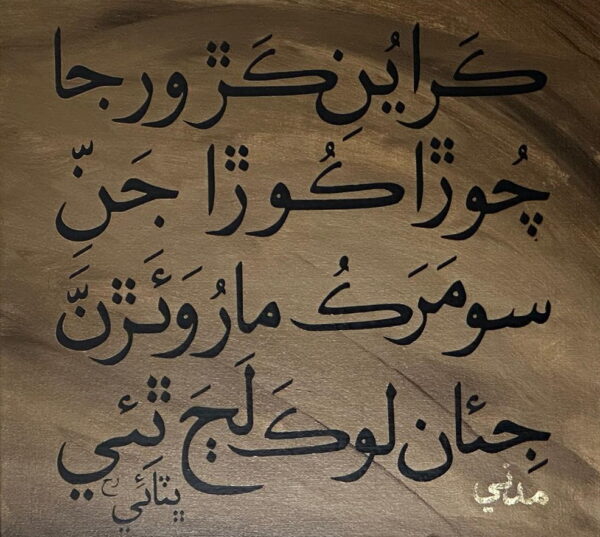 ڪَرايُنِ ڪَڙ ورجا
چُوڙا ڪُوڙا جَنِّ
سو مَرَڪُ مارُوَئَڙنَّ
جِئان لوڪَ لَڄَ ٿِئي
ڀٽائي رح
مدني